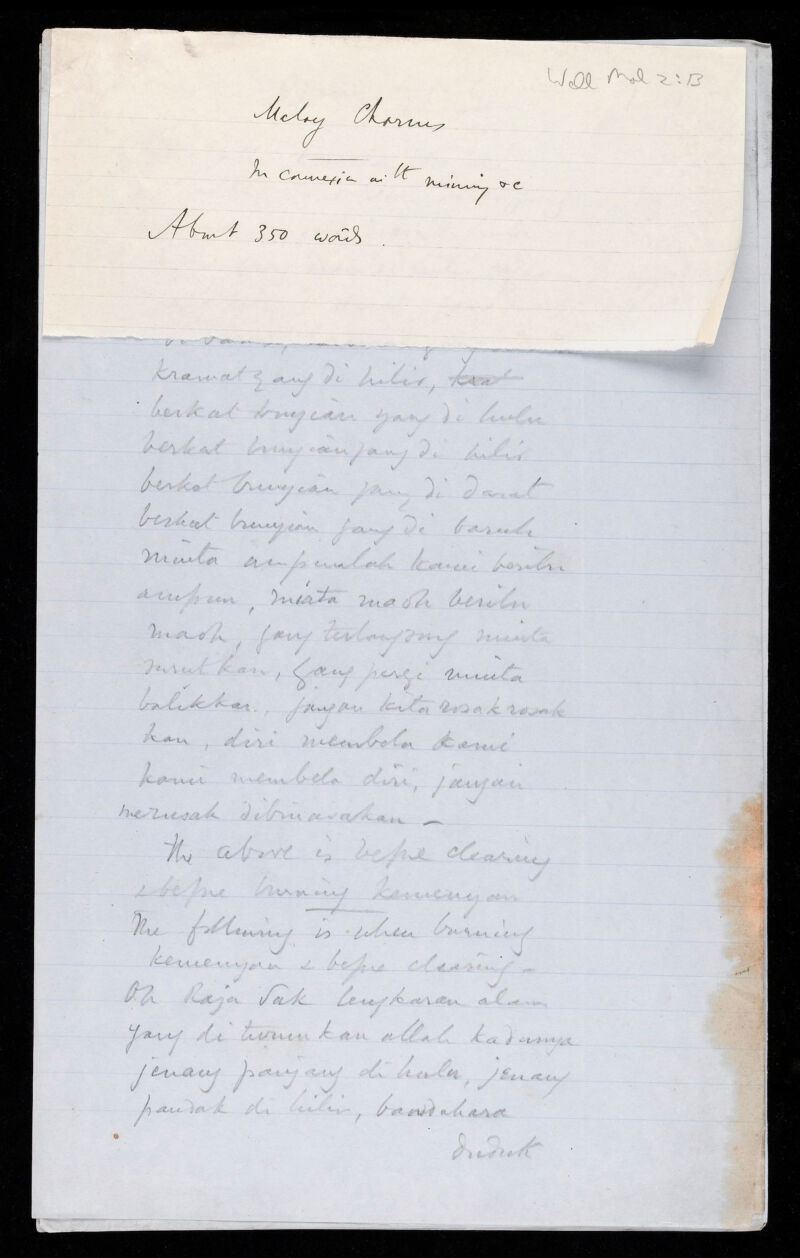 Well Mal 2:B
Malay Charms
In connexion with mining &c
About 350 words.
kramat yang di hilir,
berkat bunyian yang di hulu
berkat bunyian yang di hilir
berkat bunyian yang di darat
berkat bunyian yang di baruh
minta ampunlah kami beribu
ampun, minta maoh beribu
maoh, yang terlangsong minta
surutkan, yang pergi minta
balikkan, jangan kita rosak rosak
kan, diri membela kami
kami membela diri, jangan
merusak dibinasakan —
The above is before clearing
& before burning kemenyan
The following is when burning
kemenyan & before clearing —
Oh Raja Sak lengkaran alam
yang di turunkan allah kadunya
jenang panjang di hulu, jenang
pandak di hilir, bandahara
duduk